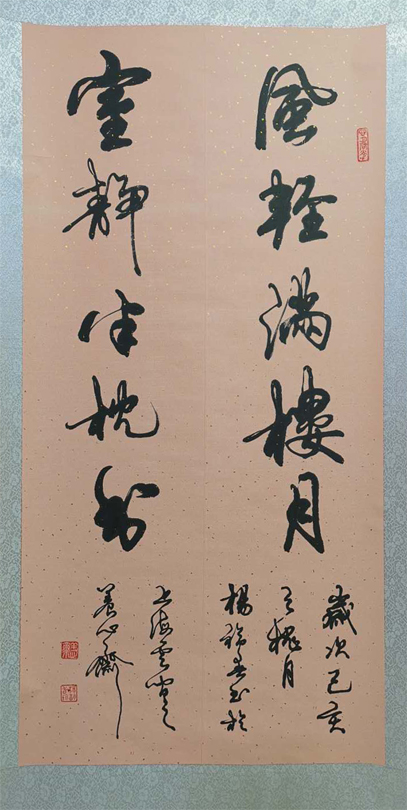 風輕滿樓月
室靜半枕書
歲次己亥
之槐月
楊 書於
上海雲間
養心齋